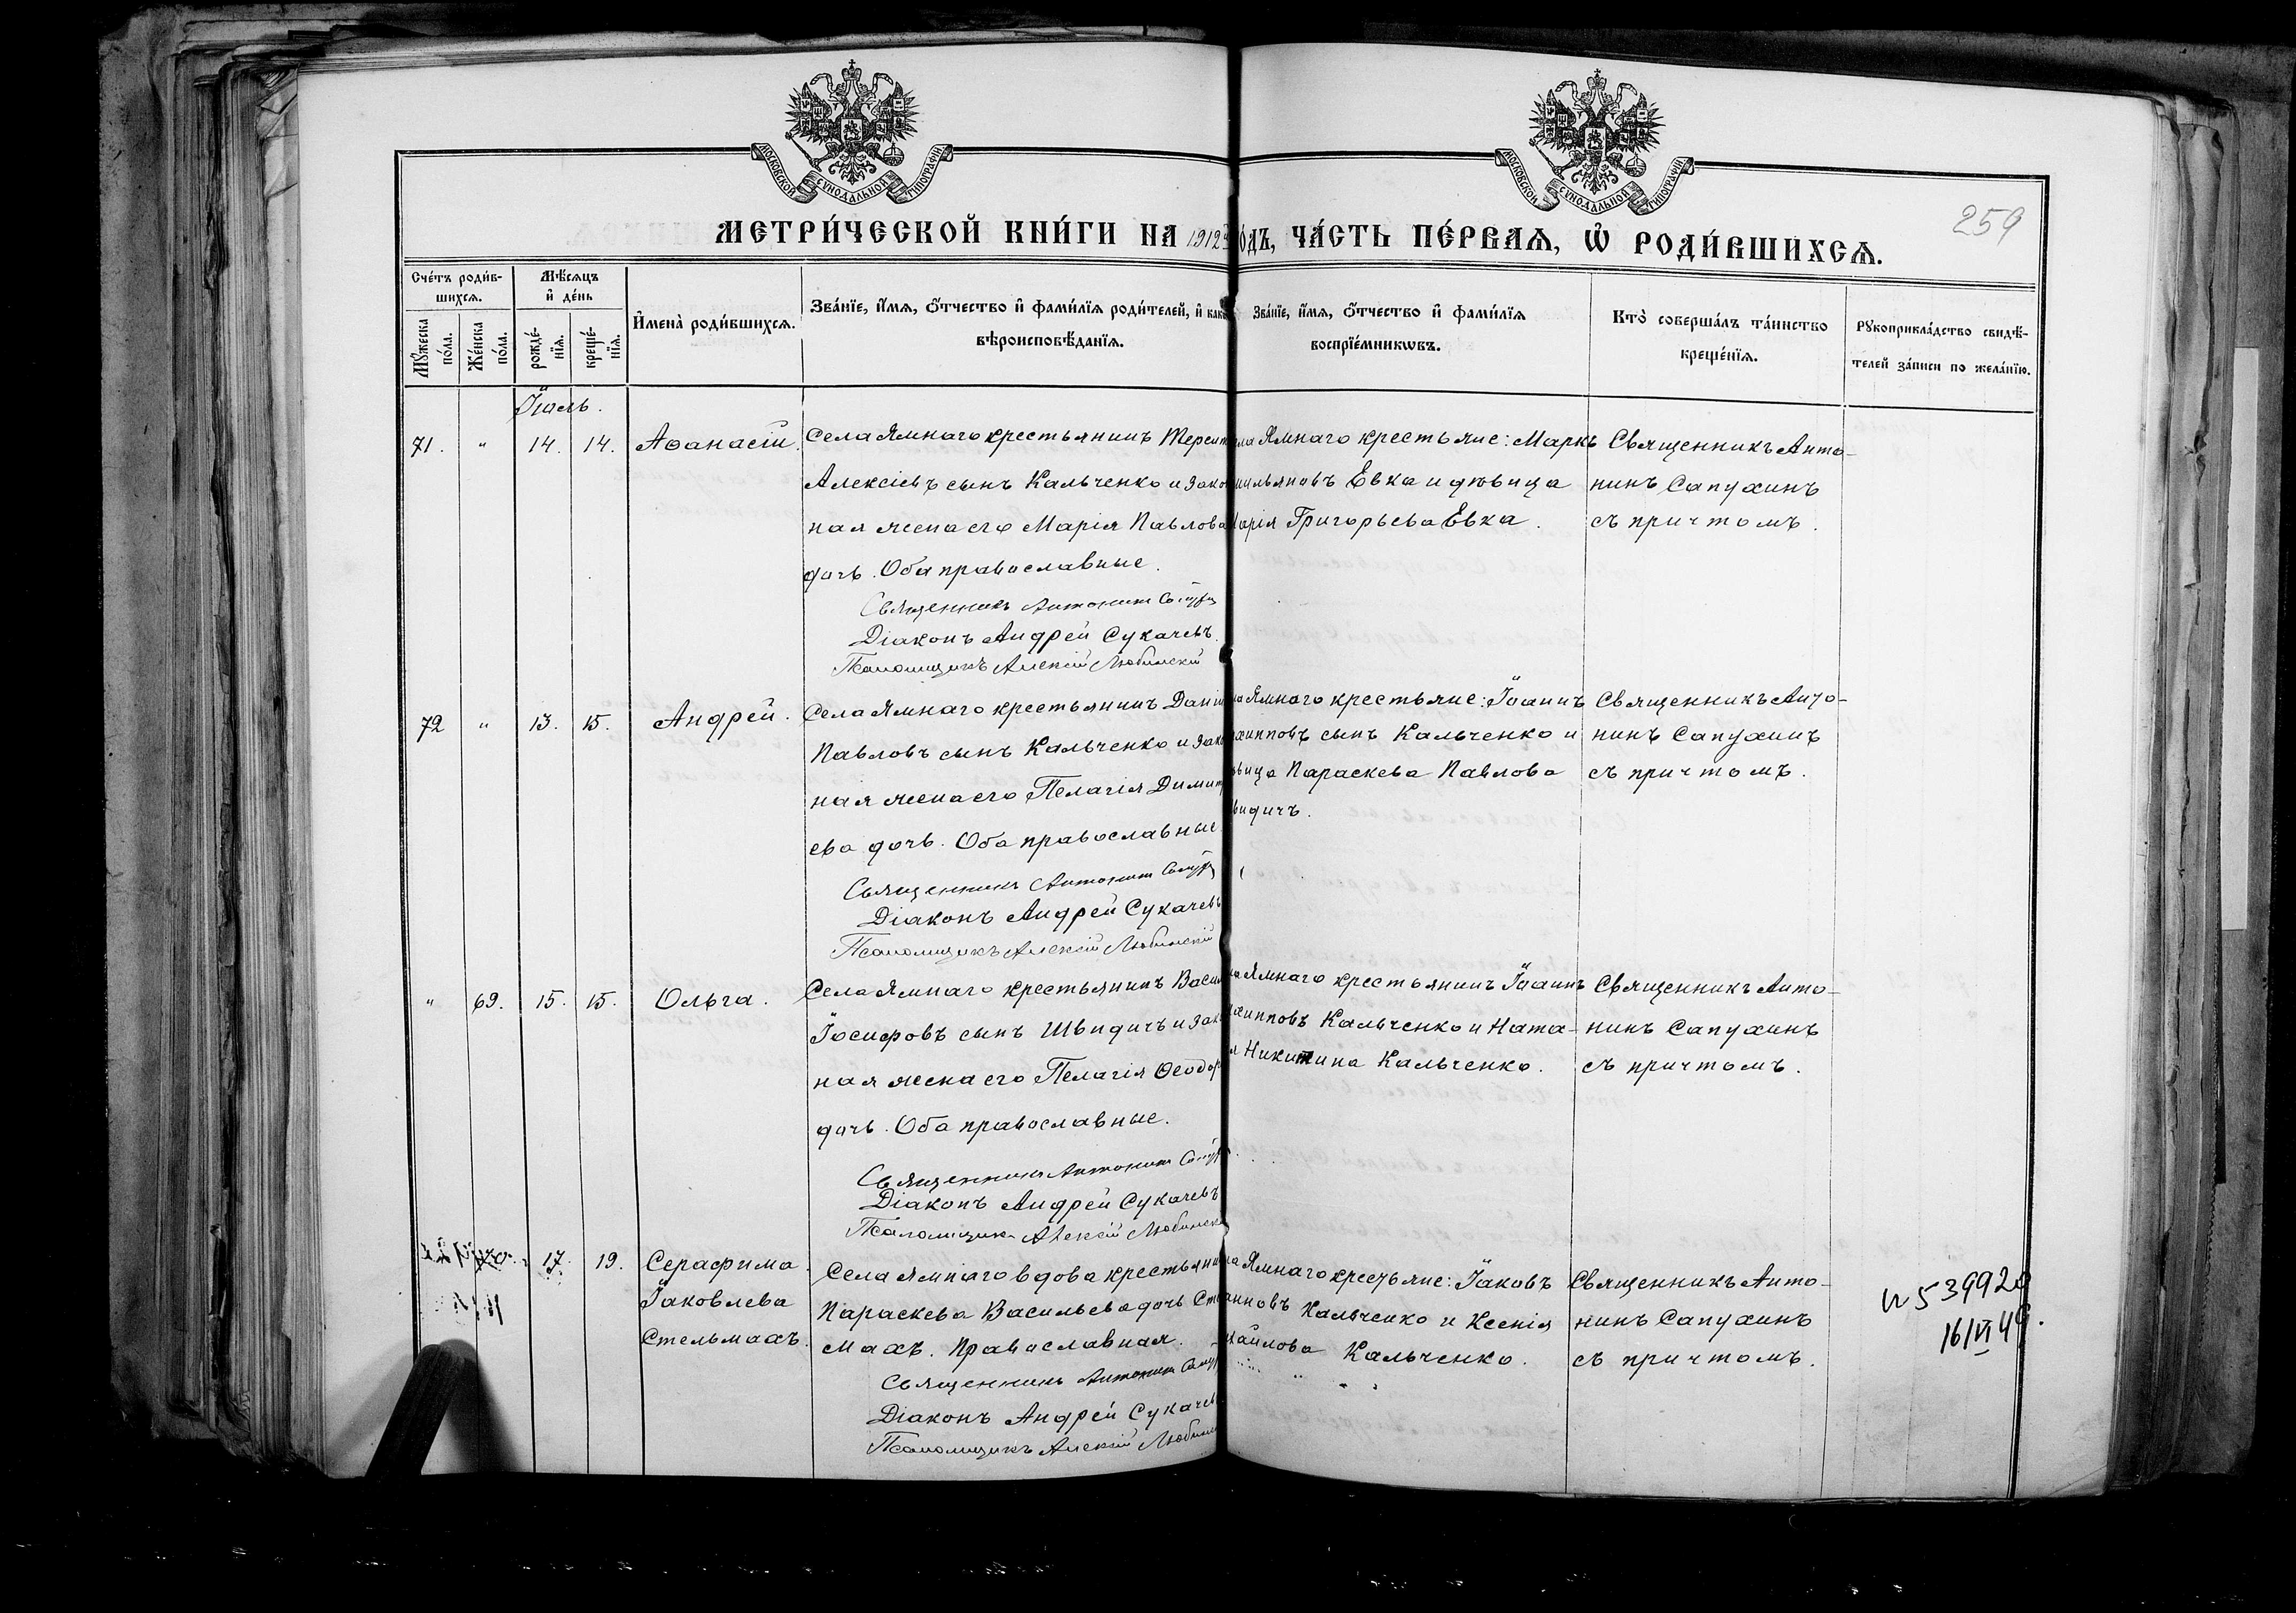 МОСКОВСКОЙ СѴНОДАЛЬНОЙ ТИПОГРАФІИ
МОСКОВСКОЙ СѴНОДАЛЬНОЙ ТИПОГРАФІИ
259
МЕТРИ́ЧЕСКОЙ КНИ́ГИ НА 1912 ГОДЪ, ЧА́СТЬ ПЕ́РВАЯ, Ѽ РОДИ́ВШИХСЯ.
Сче́тъ роди́в-
шихся.
Мѣ́сяцъ
и де́нь
Мꙋ́жеска
по́ла.
Же́нска
по́ла.
рожде́-
нїя.
креще́-
нїя.
Имена̀ роди́вшихся.
Зва́нїе, и́мя, о́тчество и фами́лїя роди́телей, и како
вѣроисповѣ́данїя.
Зва́нїе, и́мя, о́тчество и фами́лїя
воспрїе́мникѡвъ.
Кто̀ соверша́лъ та́инство
креще́нїя.
Рꙋкоприкла́дство свидѣ́-
телей за́писи по жела́нїю.
Іюль.
71. " 14. 14. Аѳанасій.
Села Ямнаго крестьянинъ Терент
Алексіевъ сынъ Кальченко и зако
ная жена его Марія Павлова
дочь. Оба православные.
Священникъ Антонинъ
Діаконъ Андрей Сукачевъ.
Псаломщикъ Алексій Любинскій
ла Ямнаго крестьяне: Маркъ
ильяновъ Евка и дѣвица
Марія Григорьева Евка.
Священникъ Анто-
нинъ Сапухинъ
съ причтомъ.
72 " 13. 15. Андрей.
Села Ямнаго крестьянинъ Даніи
Павловъ сынъ Кальченко и зако
ная жена его Пелагія Димитр
ева дочь. Оба православные.
Священникъ Антонинъ
Діаконъ Андрей Сукачевъ
Псаломщикъ Алексій Любинскій
ла Ямнаго крестьяне: Іоаннъ
хипповъ сынъ Кальченко и
вица Параскева Павлова
видичъ.
Священникъ Анто-
нинъ Сапухинъ
съ причтомъ.
" 69. 15. 15. Ольга.
Села Ямнаго крестьянинъ Васи
Іосифовъ сынъ Швидичъ и зако
ная жена его Пелагія Ѳеодор
дочь. Оба православные.
Священникъ Антонинъ
Діаконъ Андрей Сукачевъ
Псаломщикъ Алексій Любинскій
ла Ямнаго крестьянинъ Іоаннъ
хипповъ Кальченко и Ната-
я Никитина Кальченко.
Священникъ Анто-
нинъ Сапухинъ
съ причтомъ.
17. 19. Серафима
Іаковлева
Стельмахъ.
Села Ямнаго вдова крестьянин
Параскева Васильева дочь Сте
махъ. Православная.
Священникъ Антонинъ
Діаконъ Андрей Сукачевъ
Псаломщикъ Алексій Любинс
ла Ямнаго крестьяне: Іаковъ
анновъ Кальченко и Ксенія
хайлова Кальченко.
Священникъ Анто-
нинъ Сапухинъ
съ причтомъ.
16/VI 49.